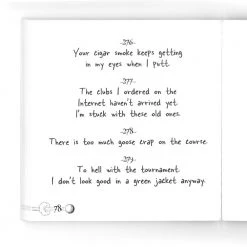 -276-
Your cigar smoke keeps getting
in my eyes when I putt.
-277-
The clubs I ordered on the
Internet haven't arrived yet.
I'm stuck with these old ones.
-278-
There is too much goose crap on the course.
-279-
To hell with the tournament.
I don't look good in a green jacket anyway.
78